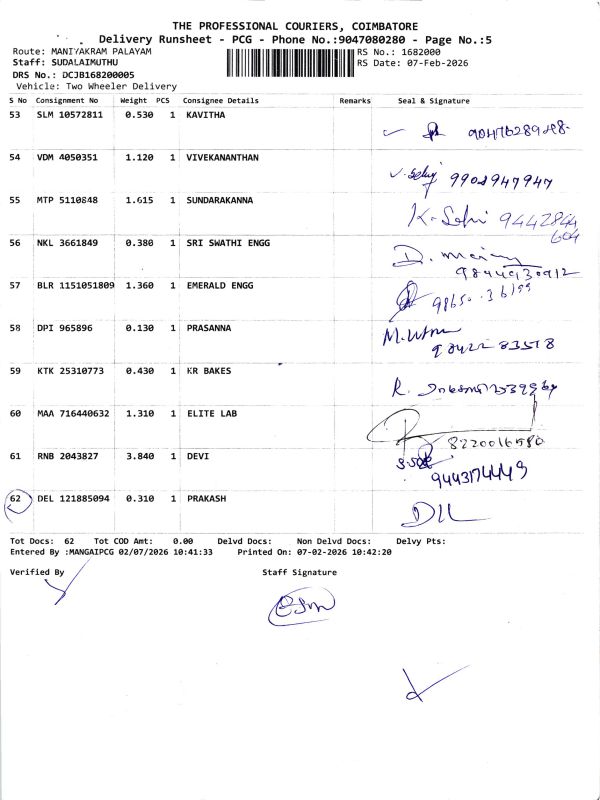 THE PROFESSIONAL COURIERS, COIMBATORE
Delivery Runsheet - PCG - Phone No.:9047080280 - Page No.:5
Route: MANIYAKRAM PALAYAM
RS No.: 1682000
Staff: SUDALAIMUTHU
RS Date: 07-Feb-2026
DRS No.: DCJB168200005
Vehicle: Two Wheeler Delivery
S No Consignment No Weight PCS Consignee Details Remarks Seal & Signature
53 SLM 10572811 0.530 1 KAVITHA
54 VDM 4050351 1.120 1 VIVEKANANTHAN
9908947947
55 MTP 5110848 1.615 1 SUNDARAKANNA
9442844
604
56 NKL 3661849 0.380 1 SRI SWATHI ENGG
57 BLR 1151051809 1.360 1 EMERALD ENGG
58 DPI 965896 0.130 1 PRASANNA
59 KTK 25310773 0.430 1 KR BAKES
60 MAA 716440632 1.310 1 ELITE LAB
8220016580
61 RNB 2043827 3.840 1 DEVI
9443174449
62 DEL 121885094 0.310 1 PRAKASH
Tot Docs: 62 Tot COD Amt: 0.00 Delvd Docs: Non Delvd Docs: Delvy Pts:
Entered By :MANGAIPCG 02/07/2026 10:41:33 Printed On: 07-02-2026 10:42:20
Verified By Staff Signature